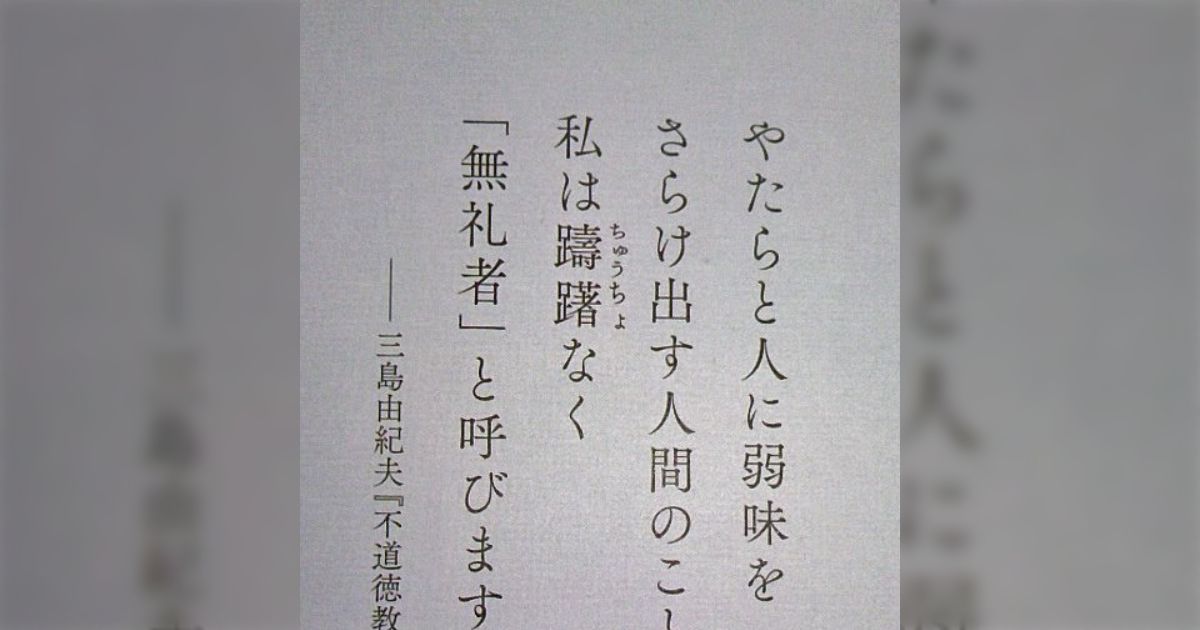 やたらと人に弱味を
さらけ出す人間のこ
私は躊躇なく
ちゅうちょ
「無礼者」と呼びます
――三島由紀夫『不道徳教